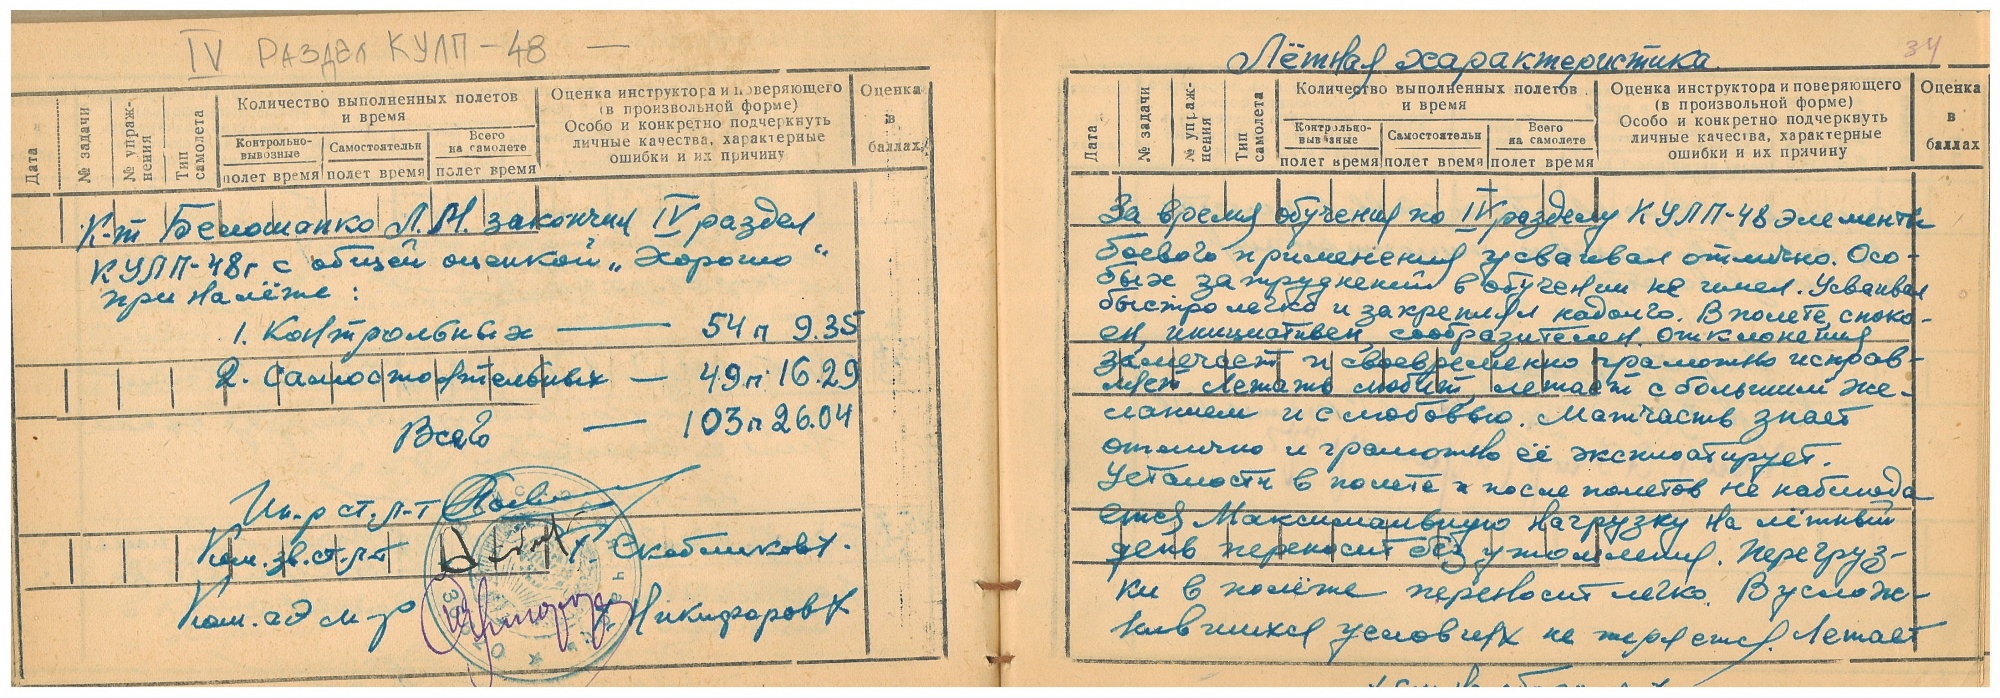 IV РАЗДЕЛ КУЛП-48 —
Дата
№ задачи
№ упраж-
нения
Тип
самолета
Количество выполненных полетов
и время
Контрольно-
вывозные
Самостоятельн
Всего
на самолете
полет время полет время полет время
Оценка инструктора и поверяющего
(в произвольной форме)
Особо и конкретно подчеркнуть
личные качества, характерные
ошибки и их причину
Оценка
в
баллах
К-т Белошапко Л.М. закончил IV раздел
КУЛП-48г с общей оценкой „Хорошо“
при налёте:
1. Контрольных — 54 п 9.35
2. Самостоятельных — 49 п. 16.29
Всего — 103 п 26.04
Ин-р ст. л-т
Ком. зв. ст. л-т Скобликов
Ком. аэ м-р Никифоров
Лётная характеристика
34
Дата
№ задачи
№ упраж-
нения
Тип
самолета
Количество выполненных полетов
и время
Контрольно-
вывозные
Самостоятельн
Всего
на самолете
полет время полет время полет время
Оценка инструктора и поверяющего
(в произвольной форме)
Особо и конкретно подчеркнуть
личные качества, характерные
ошибки и их причину
Оценка
в
баллах
За время обучения по IV разделу КУЛП-48 элементы
боевого применения усваивал отлично. Осо-
бых затруднений в обучении не имел. Усваивал
быстро легко и закреплял надолго. В полете споко-
ен, инициативен, сообразителен. Отклонения
замечает и своевременно грамотно исправ-
ляет. Летать любит, летает с большим же-
ланием и с любовью. Матчасть знает
отлично и грамотно её эксплоатирует.
Усталости в полете и после полетов не наблюда
ется. Максимальную нагрузку на лётный
день переносит без утомления. Перегруз-
ки в полёте переносит легко. В услож-
нившихся условиях не теряется. Летает